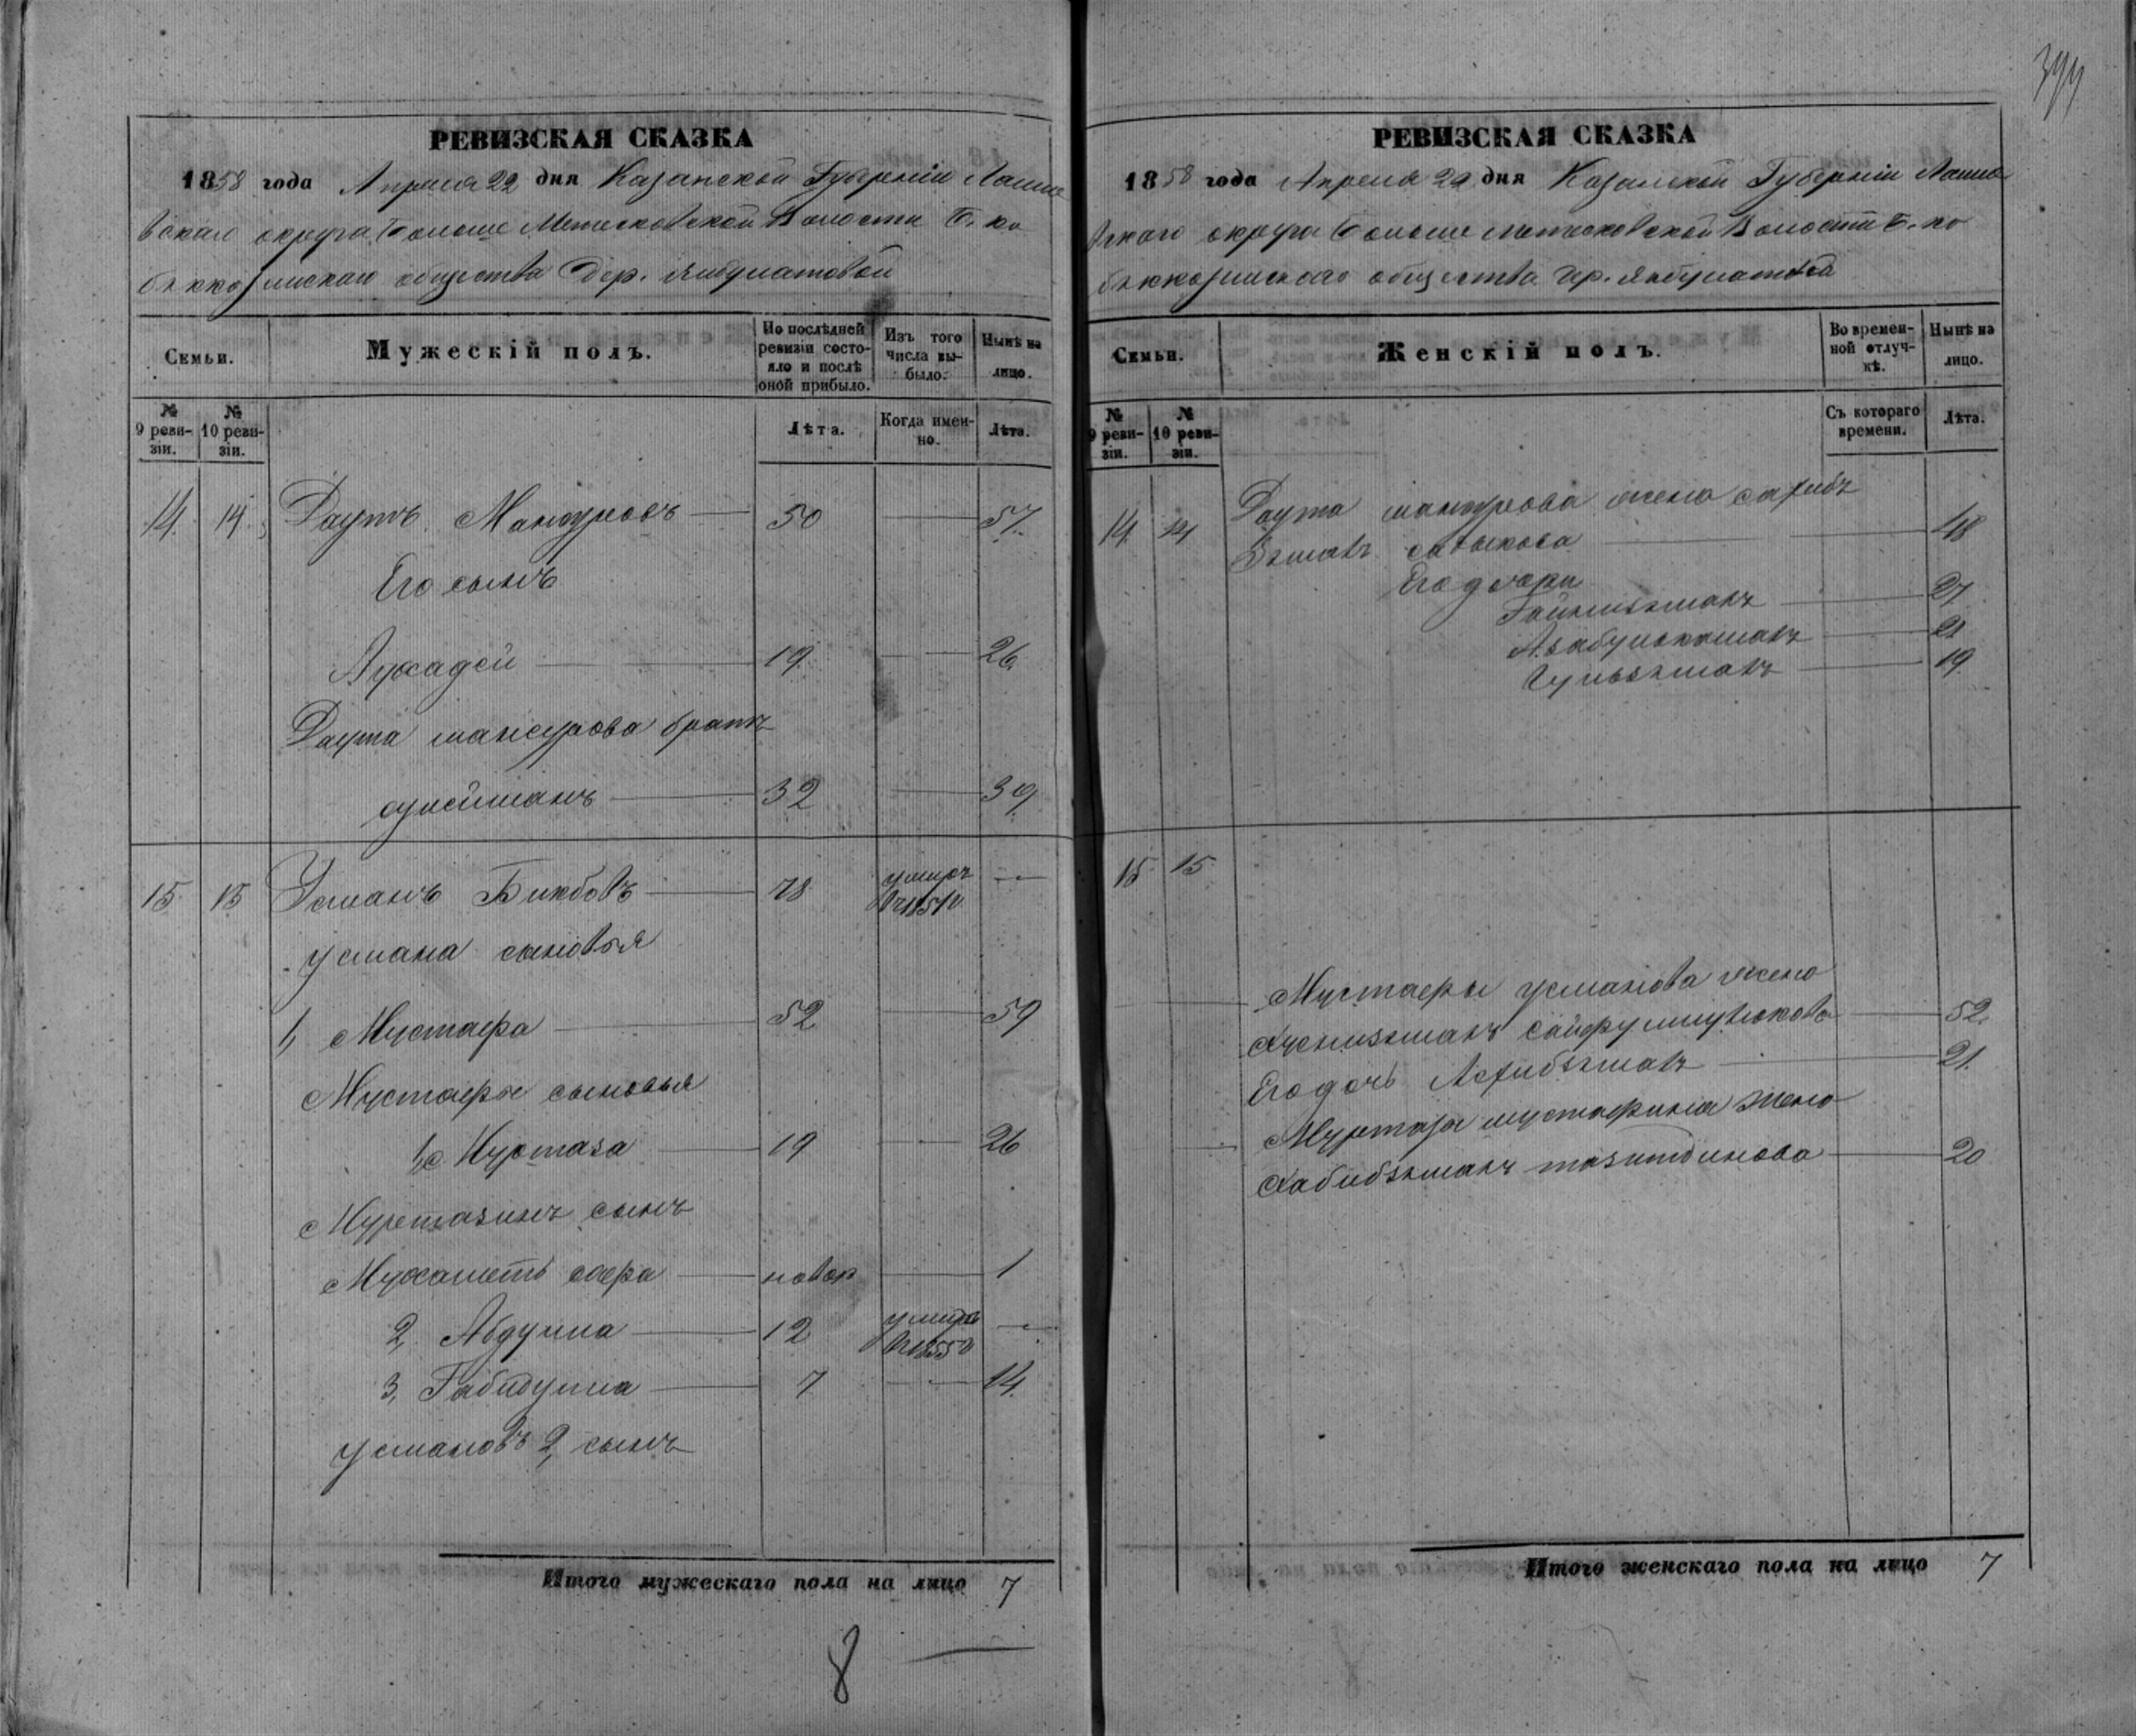 399
РЕВИЗСКАЯ СКАЗКА
1858 года Апреля 22 дня Казанской Губерніи Лаише
вскаго округа Больше Метесковской Волости Б. ко
общества Дер. Янбулатовой
Семьи.
Мужескій полъ.
По послѣдней ревизіи состояло и послѣ оной прибыло.
Изъ того числа выбыло.
Нынѣ на лицо.
№ 9 ревизіи.
№ 10 ревизіи.
Лѣта.
Когда именно.
Лѣта.
14. 14. Даутъ Мансуровъ 50 57.
Его сынъ
19. 26.
Даута мансурова братъ
сулейманъ 32 39
15. 15 Усманъ Бикбовъ 78 умеръ —
усмана сыновья
1, Мустафа 52 59
Мустафы сыновья
1, Муртаза 19 26
Муртазинъ сынъ
Мухаметъ сафа новор 1
2, Абдулла 12 умеръ —
3, Габидулла 7 14.
усмановъ 2, сынъ
Итого мужескаго пола на лицо 7
8
РЕВИЗСКАЯ СКАЗКА
1858 года Апреля 22 дня Казанской Губерніи Лаише
вскаго округа Больше метесковской Волости Б. ко
общества др. янбулатовой
Семьи.
Женскій полъ.
Во временной отлучкѣ.
Нынѣ на лицо.
№ 9 ревизіи.
№ 10 ревизіи.
Съ котораго времени.
Лѣта.
14. 14 Даута мансурова жена
садыкова 48
Его дочери
27.
21
19.
15. 15.
Мустафы усманова жена
52.
Его дочь 21.
Муртазы мустафина жена
20
Итого женскаго пола на лицо 7